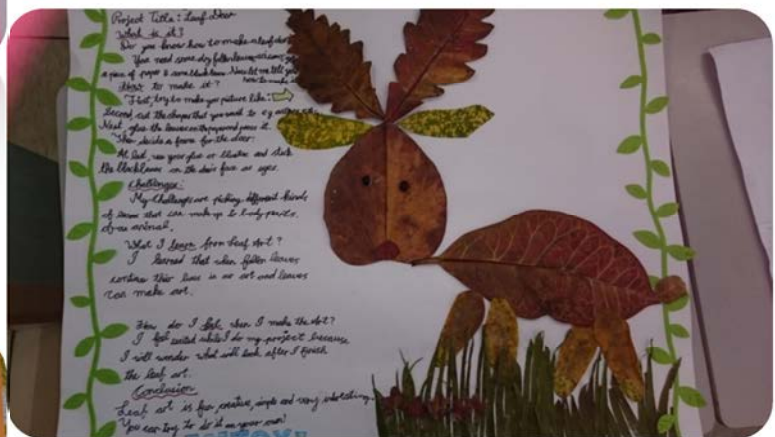 Project Title: Leaf Deer
What is it?
Do you know how to make a leaf deer?
You need some dry fallen leaves, scissors, glue,
a piece of paper & some black beans. Now let me tell you
How to make it? how to make it
First, try to make your picture like:
Second, cut the shapes that you want to e.g. antlers
Next glue the leaves on the paper and press it.
Then decide a frame for the deer.
At last, use your glue or and stick
the black beans on the deer's face as eyes.
Challenges:
My challenges are picking different kinds
of leaves that can make up to body parts
of an animal.
What I learn from Leaf Art?
I learned that when fallen leaves
continue their lives in an art and leaves
can make art.
How do I feel when I make the art?
I feel excited while I do my project because
I will wonder what will look after I finish
the leaf art.
Conclusion
Leaf art is fun, creative, simple and very interesting.
You can try to do it on your own!
ENJOY!